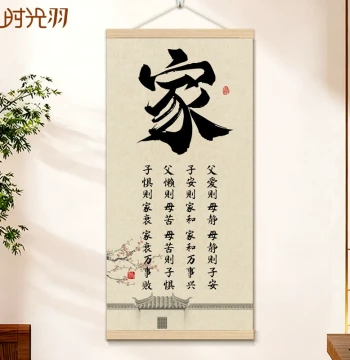 时光羽
家
父爱则母静 母静则子安
子安则家和 家和万事兴
父懒则母苦 母苦则子惧
子惧则家衰 家衰万事败